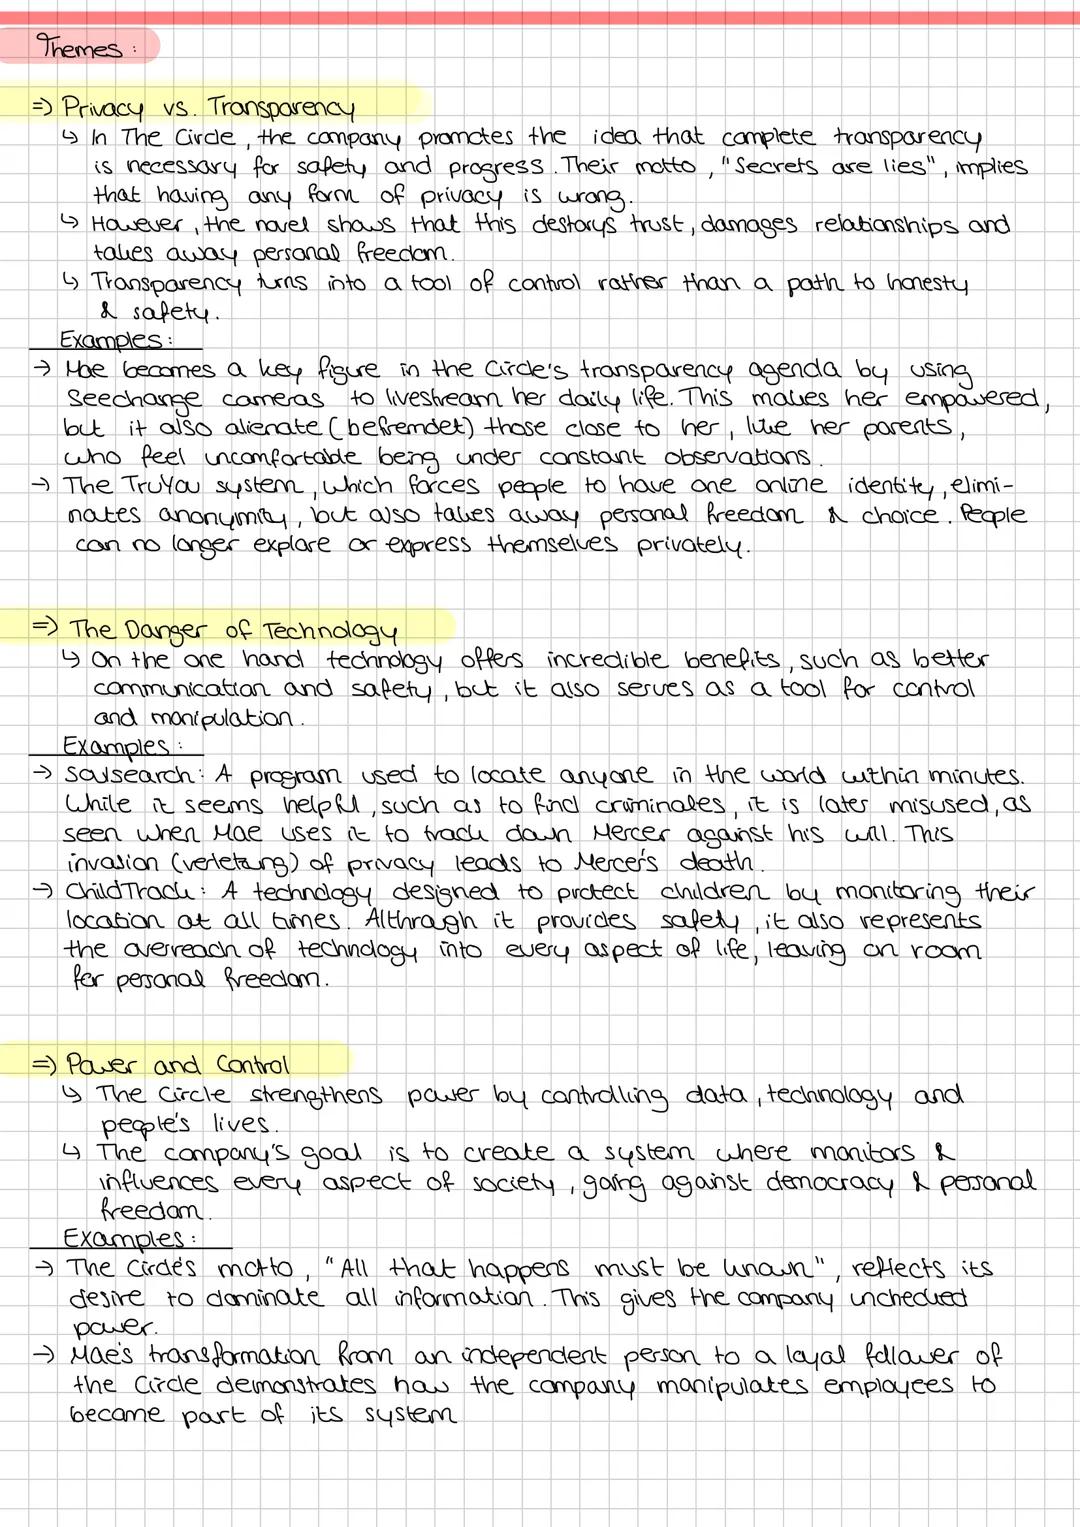 Themes :
=> Privacy vs. Transparency
↳ In The Circle, the company promotes the idea that complete transparency
is necessary for safety and progress. Their motto, "Secrets are lies", implies
that having any form of privacy is wrong.
↳ However, the novel shows that this destorys trust, damages relationships and
takes away personal freedom.
↳ Transparency turns into a tool of control rather than a path to honesty
& safety.
Examples:
→ Mae becomes a key figure in the Circle's transparency agenda by using
Seechange cameras to livestream her daily life. This makes her empowered,
but it also alienate (befremdet) those close to her, like her parents,
who feel uncomfortable being under constant observations.
→ The TruYou system, which forces people to have one online identity, elimi-
nates anonymity, but also takes away personal freedom & choice. People
can no longer explore or express themselves privately.
=> The Danger of Technology
↳ On the one hand technology offers incredible benefits, such as better
communication and safety, but it also serves as a tool for control
and manipulation.
Examples:
→ Soulsearch: A program used to locate anyone in the world within minutes.
While it seems helpful, such as to find criminales, it is later misused, as
seen when Mae uses it to track down Mercer against his will. This
invasion (verletzung) of privacy leads to Mercer's death.
→ ChildTrack: A technology designed to protect children by monitoring their
location at all times. Althrough it provides safety, it also represents
the overreach of technology into every aspect of life, leaving on room
for personal freedom.
=> Power and Control
↳ The Circle strengthens power by controlling data, technology and
people's lives.
↳ The company's goal is to create a system where monitors &
influences every aspect of society, going against democracy & personal
freedom.
Examples:
→ The Circle's motto, "All that happens must be known", reflects its
desire to dominate all information. This gives the company unchecked
power.
→ Mae's transformation from an independent person to a loyal follower of
the Circle demonstrates how the company manipulates employees to
become part of its system